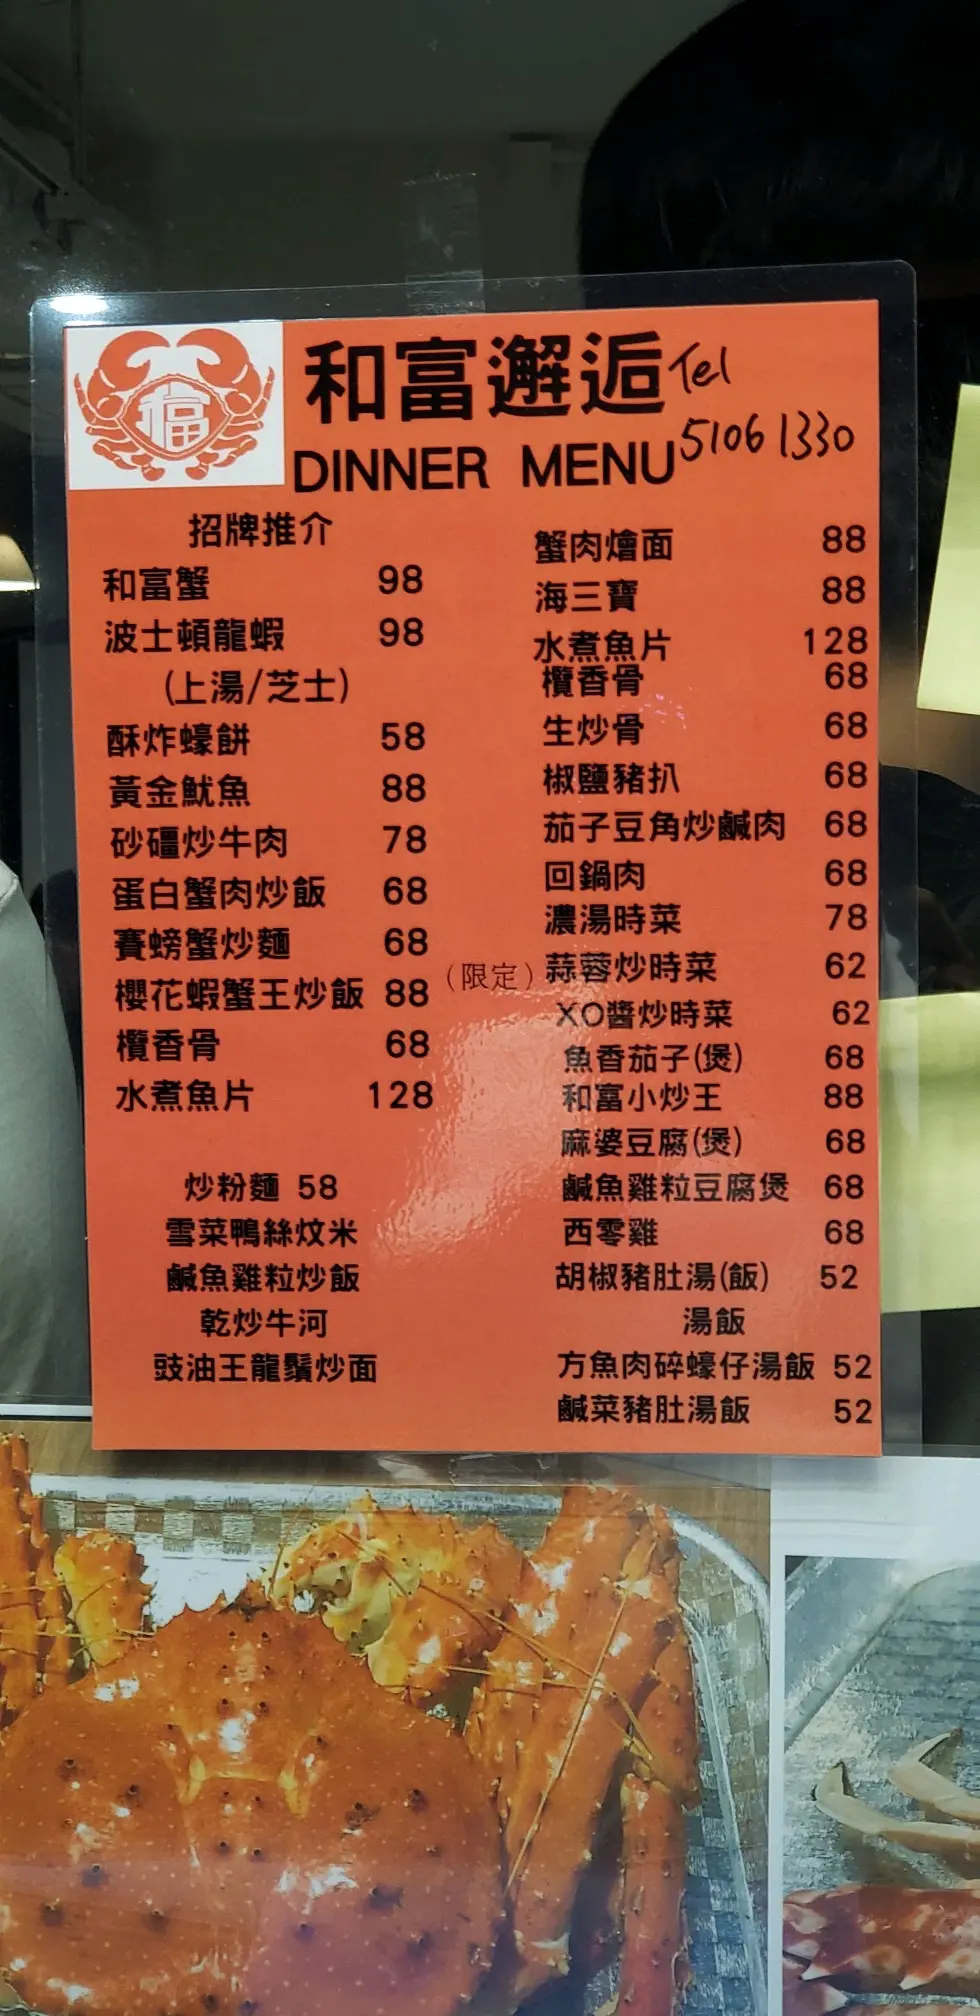 福
和富邂逅 Tel
DINNER MENU 5106 1330
招牌推介
和富蟹 98
波士頓龍蝦 98
(上湯/芝士)
酥炸蠔餅 58
黃金魷魚 88
砂礓炒牛肉 78
蛋白蟹肉炒飯 68
賽螃蟹炒麵 68
櫻花蝦蟹王炒飯 88 (限定)
欖香骨 68
水煮魚片 128
炒粉麵 58
雪菜鴨絲炆米
鹹魚雞粒炒飯
乾炒牛河
豉油王龍鬚炒面
蟹肉燴面 88
海三寶 88
水煮魚片 128
欖香骨 68
生炒骨 68
椒鹽豬扒 68
茄子豆角炒鹹肉 68
回鍋肉 68
濃湯時菜 78
蒜蓉炒時菜 62
XO醬炒時菜 62
魚香茄子(煲) 68
和富小炒王 88
麻婆豆腐(煲) 68
鹹魚雞粒豆腐煲 68
西零雞 68
胡椒豬肚湯(飯) 52
湯飯
方魚肉碎蠔仔湯飯 52
鹹菜豬肚湯飯 52